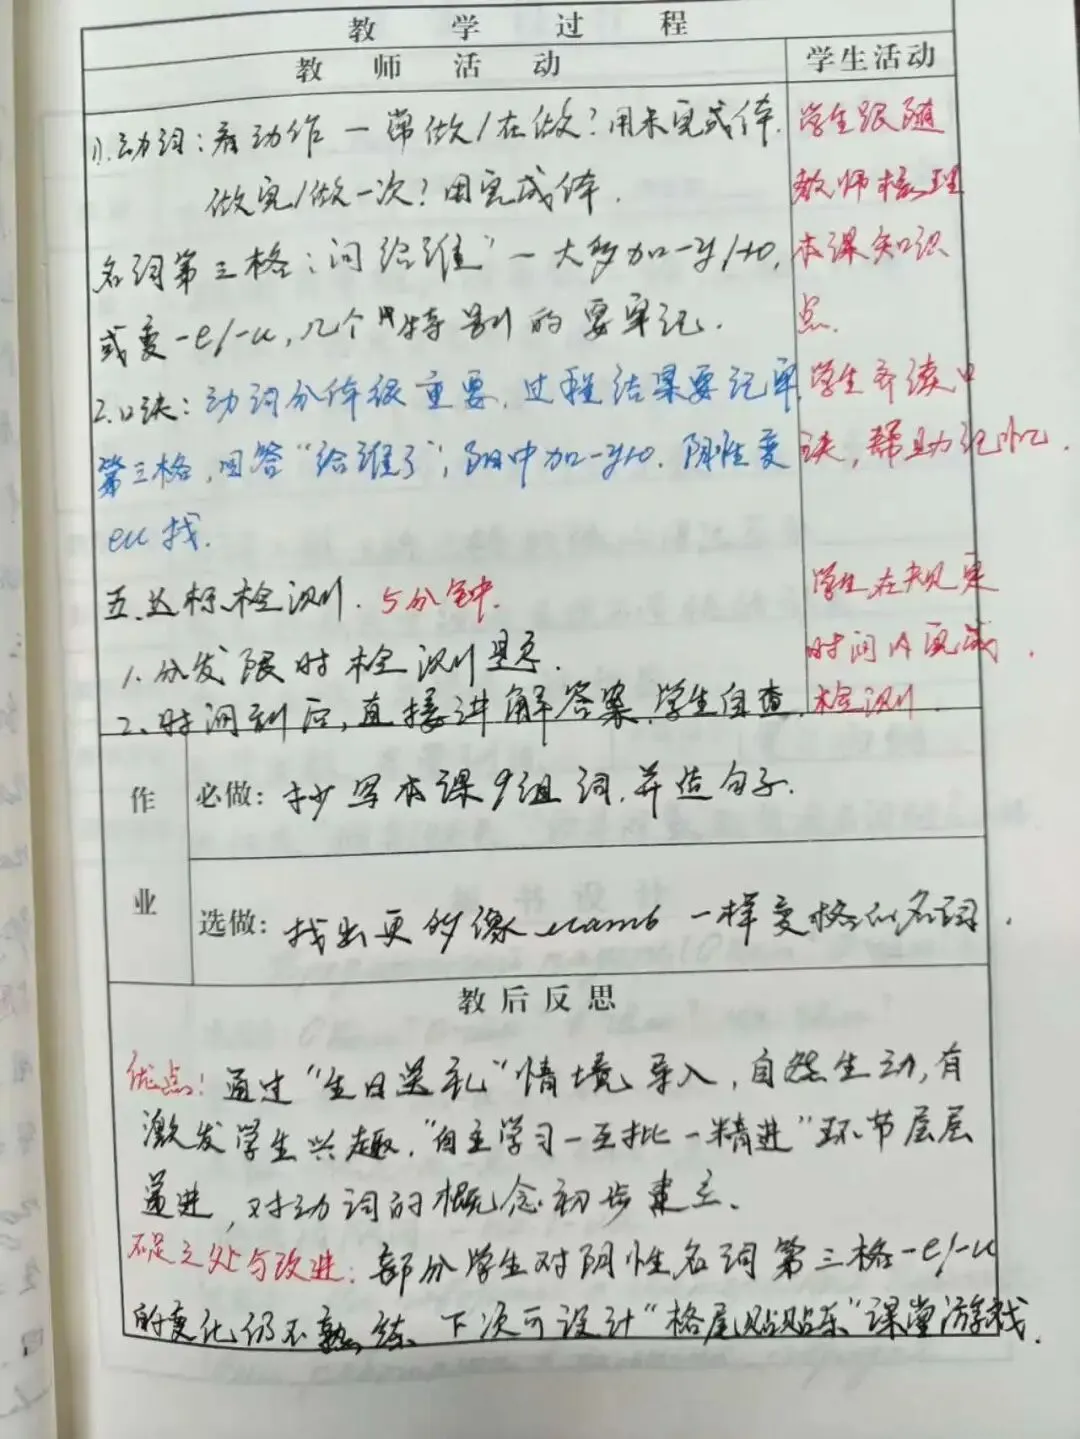 教 学 过 程
教 师 活 动
学生活动
1.动词:看动作 — 常做/在做?用未完成体.
做完/做一次?用完成体.
名词第三格:问"给谁" — 大多加-у/-ю,
或变-е/-и,几个特别的要牢记.
2.口诀:动词分体很重要,过程结果要记牢,
第三格,回答"给谁了",阳中加-у-ю.阴性变
еи找.
五.达标检测. 5分钟.
1.分发限时检测题.
2.时间到后,直接讲解答案,学生自查.
学生跟随
教师梳理
本课知识
点.
学生齐读口
诀,帮助记忆.
学生在规定
时间内完成
检测.
作
业
必做: 抄写本课9组词,并造句子.
选做: 找出更多像 мать 一样变格的名词.
教后反思
优点:通过"生日送礼"情境导入,自然生动,有
激发学生兴趣."自主学习—互批—精进"环节层层
递进,对动词的概念初步建立.
不足之处与改进:部分学生对阴性名词第三格-е/-и
的变化仍不熟练.下次可设计"格尾贴贴乐"课堂游戏.